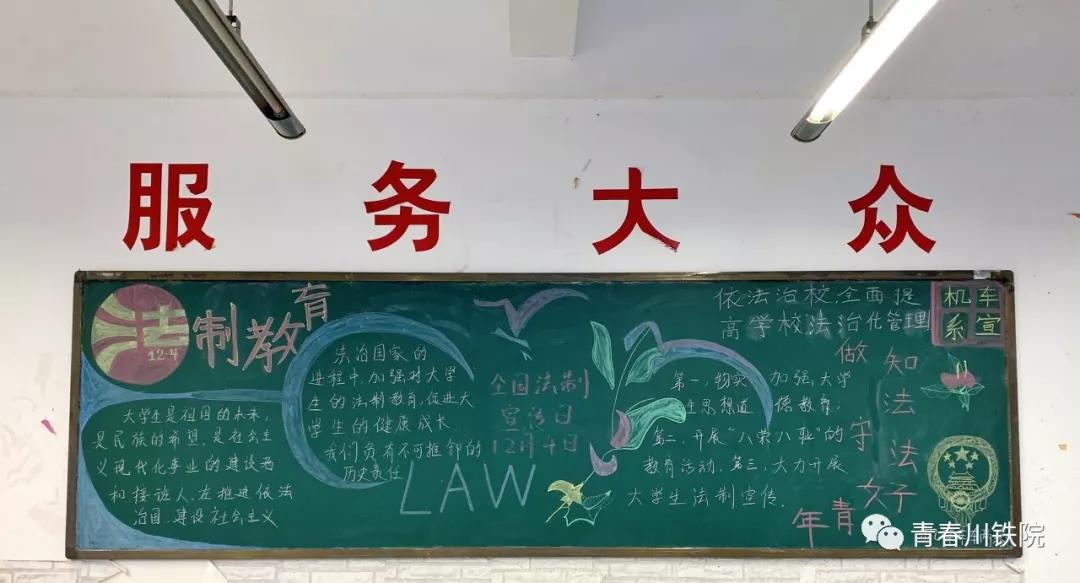 服务大众
法制教育
12.4
大学生是祖国的未来,
是民族的希望,是社会主
义现代化事业的建设者
和接班人,在推进依法
治国,建设社会主义
法治国家的
进程中,加强对大学
生的法制教育,促进大
学生的健康成长.
我们负有不可推卸的
历史责任
全国法制
宣传日
12月4日
LAW
依法治校,全面提
高学校法治化管理
第一,切实 加强大学
生思想道 德教育;
第二,开展"八荣八耻"的
教育活动.第三,大力开展
大学生法制宣传.
机车
系宣
做知法守法好
青年
青春川铁院